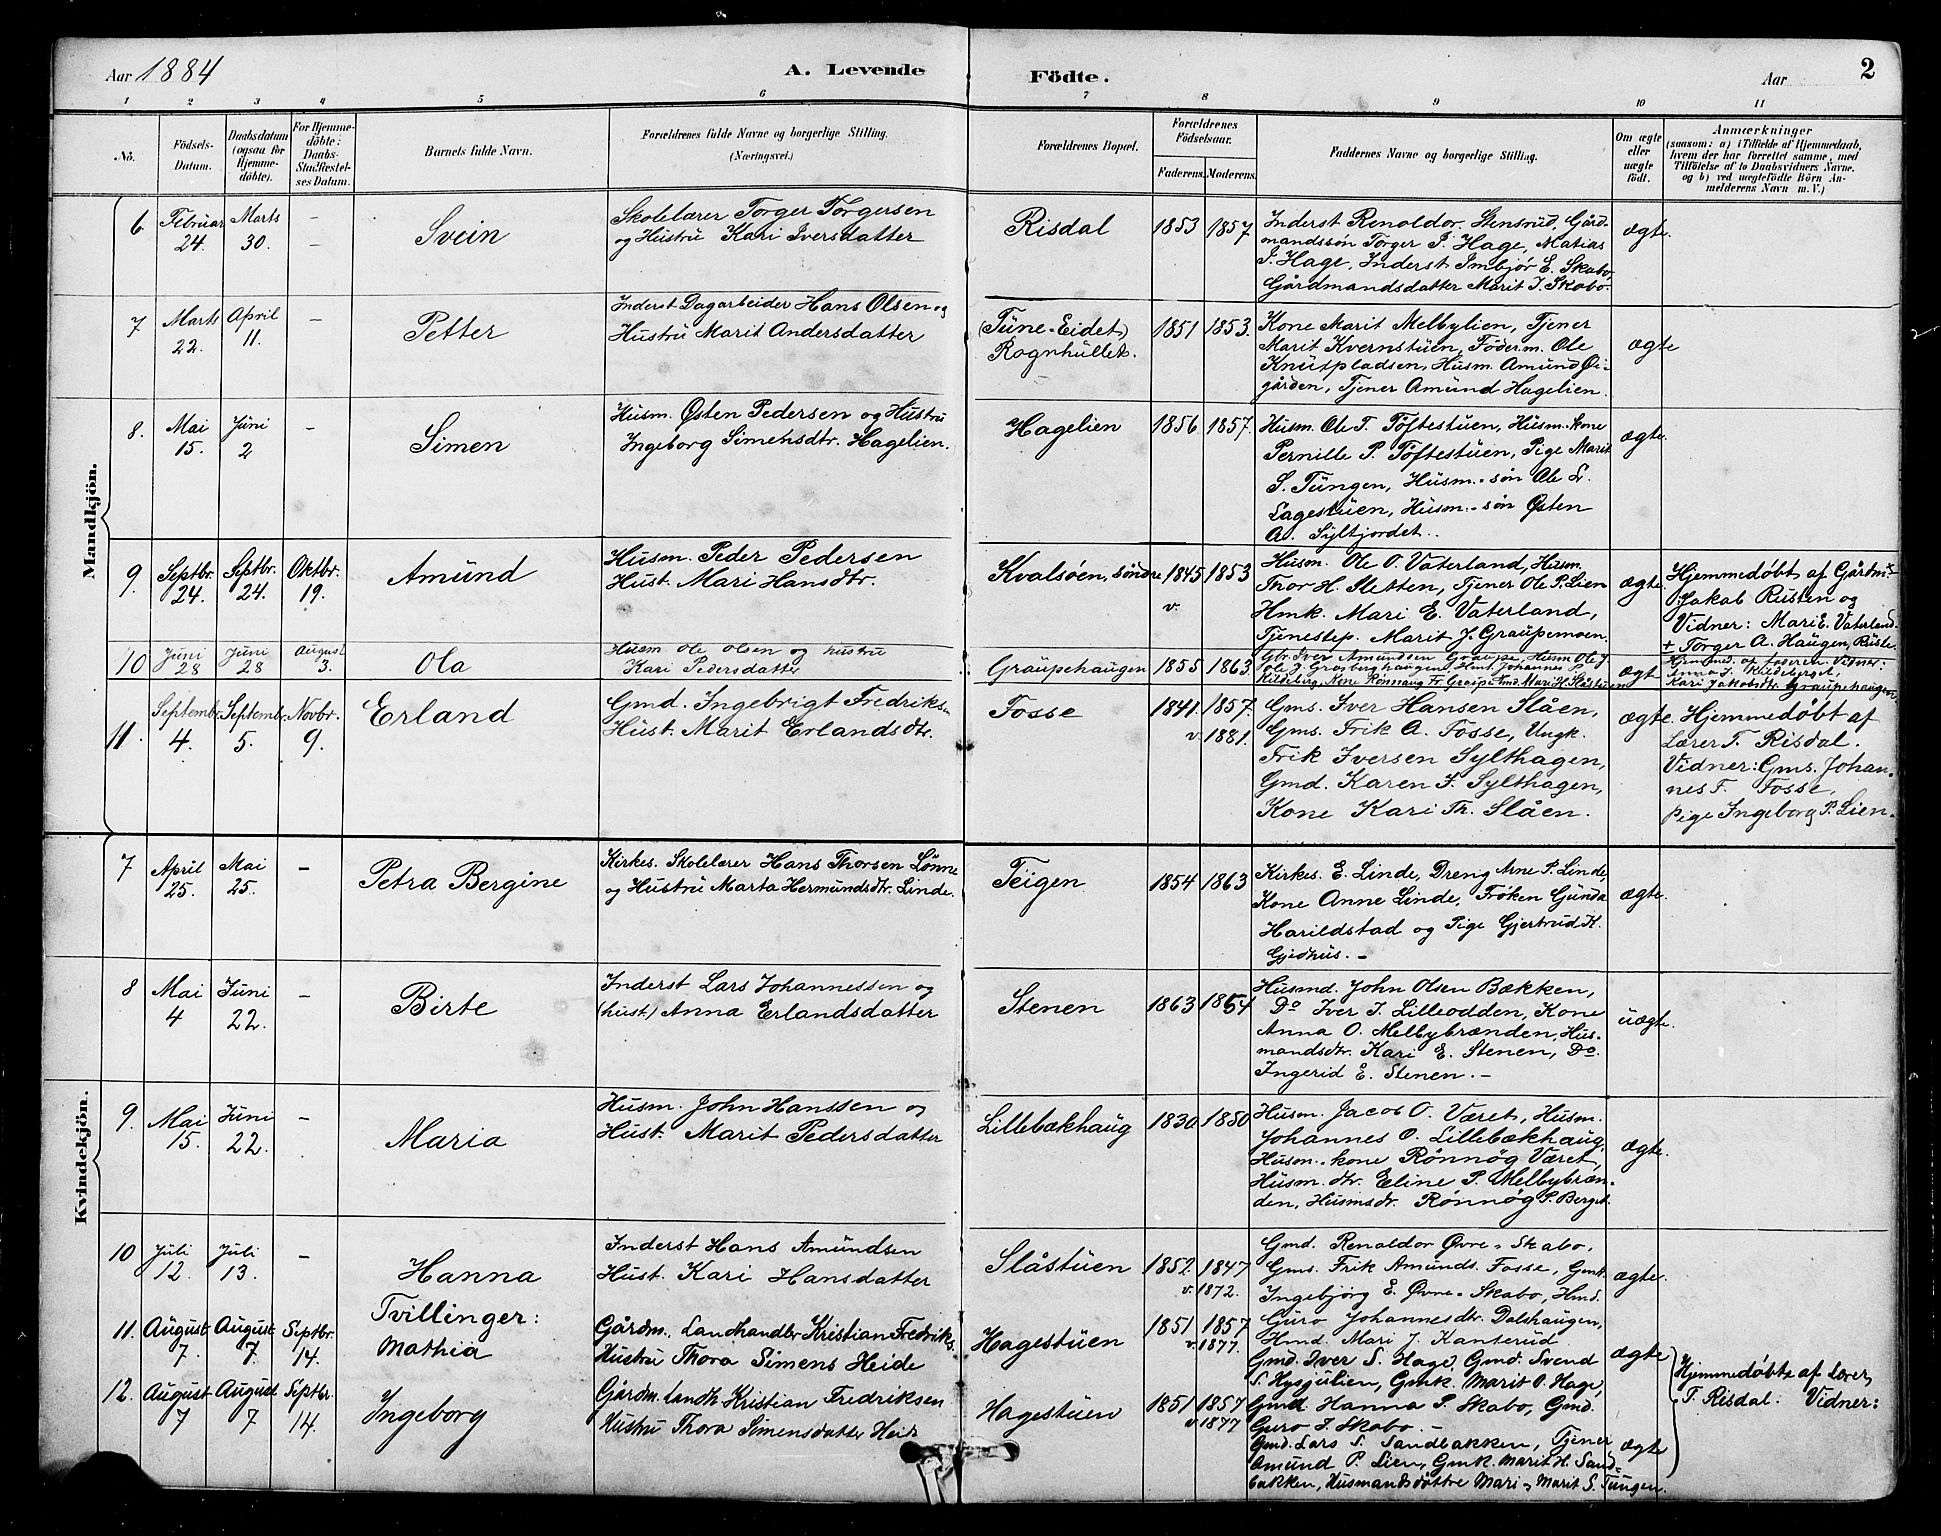 Aar 1884
A. Levende Födte.
Aar
2
1 2 3 4 5 6 7 8 9 10 11
No.
Födsels-
Datum.
Daabsdatum
(ogsaa för
Hjemme-
döbte).
For Hjemme-
döbte:
Daabs-
Stadfæstel-
ses Datum.
Barnets fulde Navn.
Forældrenes fulde Navne og borgerlige Stilling.
(Næringsvei.)
Forældrenes Bopæl.
Forældrenes
Födselsaar.
Faderens. Moderens.
Faddernes Navne og borgerlige Stilling.
Om ægte
eller
uægte
födt.
Anmærkninger
(saasom: a) i Tilfælde af Hjemmedaab,
hvem der har forrettet samme, med
Tilföielse af to Daabsvidners Navne.
og b) ved uægtefödte Börn An-
melderens Navn m. V.)
Mandkjön.
6
Februar
24.
Marts
30.
–
–
Svein
Skolelærer Torger Torgersen
og Hustru Kari Iversdatter
Risdal
1853 1857
Inderst Renoldor. Stensrud, Gård-
mandssøn Torger I. Hage, Matias
I. Hage, Inderst Imbjør E. Skabo,
Gårdmandsdatter Marit I. Skabo.
ægte.
7
Marts
22.
April
11.
–
Petter
Inderst Dagarbeider Hans Olsen og
Hustru Marit Andersdatter
(Tune-Eidet)
Rognhullet.
1851 1853.
Kone Marit Melbylien, Tjener
Marit Kvernstuen, Føderm. Ole
Knutpladsen, Husm. Amund Øi-
gården, Tjener Amund Hagelien.
ægte
8.
Mai
15.
Juni
2
–
Simen
Husm. Østen Pedersen og Hustru
Ingeborg Simensdtr. Hagelien.
Hagelien
1856 1857.
Husm. Ole T. Toftestuen, Husm.-kone
Pernille P. Toftestuen, Pige Marit
S. Tungen, Husm.-søn Ole L.
Lagestuen, Husm.-søn Østen
A. Syltjordet.
ægte.
9.
Septbr.
24.
Septbr.
24.
Oktbr.
19.
Amund
Husm. Peder Pedersen
Hust. Mari Hansdtr.
Kvalsøen, søndre
1845 1853
v.
Husm. Ole O. Vaterland, Husm.
Thor H. Sletten, Tjener Ole P. Lien
Hmk. Mari E. Vaterland,
Tjenestep. Marit J. Graupemoen.
ægte.
Hjemmedøbt af Gårdm.
Jakob Rusten og
Vidner: Mari E. Vaterland
+ Torger A. Haugen, Ruste.
10
Juni
28
Juni
28
August
3.
Ola
Husm Ole Olsen og hustru
Kari Pedersdatter
Graupehaugen
1855 1863.
Gbr. Iver Amundsen Graupe, Husm Ole J.
Ole J. Grasberghaugen, Hmt. Johannes P.
Kildeberg, Kone Rønnaug Fr. Graupe Gmd. Mari H. Slåstuen
ægt
Hjemmed. af faderen. Vidner:
Kari Jakobsdtr. Graupehaugen.
11.
Septembr.
4.
Septembr.
5.
Novbr.
9.
Erland
Gmd. Ingebrigt Fredriksen
Hust. Marit Erlandsdtr.
Fosse
1841. 1857.
v. 1881.
Gms. Iver Hansen Slåen,
Gms. Frik A. Fosse, Ungk.
Frik Iversen Sylthagen,
Gmd. Karen F. Sylthagen,
Kone Kari Th. Slåen.
ægte.
Hjemmedøbt af
Lærer T. Risdal.
Vidner: Gms. Johan-
nes F. Fosse,
Pige Ingeborg P. Lien.
Kvindekjön.
7
April
25.
Mai
25.
–
Petra Bergine
Kirkes. Skolelærer Hans Thorsen Lønne
og Hustru Marta Hermundsdtr. Linde.
Teigen
1854 1863
Kirkes. E. Linde, Dreng Arne P. Linde,
Kone Anne Linde, Frøken Gunda
Harildstad og Pige Gjertrud K.
Gjedhus. –
ægte.
8
Mai
4
Juni
22.
–
Birte
Inderst Lars Johannessen og
(hust.) Anna Erlandsdatter
Stenen
1863 1854
Husmd. John Olsen Bækken,
Do Iver I. Lilleodden, Kone
Anna O. Melbybrænden, Hus-
mandsdtr. Kari E. Stenen, Do.
Ingerid E. Stenen. –
uægte.
9.
Mai
15.
Juni
22.
–
Maria
Husm. John Hanssen og
Hust. Marit Pedersdatter
Lillebækhaug
1830 1850
Husm. Jacob O. Været, Husm.
Johannes O. Lillebækhaug,
Husm.-kone Rønnøg Været,
Husm. dtr. Eline P. Melbybræn-
den, Husmsdtr. Rønnøg P. Berget.
ægte.
10
Juli
12.
Juli
13.
–
Hanna
Inderst Hans Amundsen
Hust. Kari Hansdatter
Slåstuen
1852. 1847
v. 1872.
Gmd. Renaldor Øvre-Skabo,
Gms. Frik Amunds. Fosse, Gmk.
Ingebjørg E. Øvre-Skabo, Hmd.
Guro Johannesdtr. Dalshaugen,
Hmd. Mari J. Kanserud
ægte.
Tvillinger:
11.
August
7.
August
7.
Septbr.
14.
Mathia
Gårdm. Landhandler Kristian Fredriks.
Hustru Thora Simens Heide
Hagestuen
1851 1857
v. 1877.
Gmd. Iver S. Hage, Gmd. Svend
S. Hysjulien, Gmk. Marit O. Hage,
Gmd. Hanna P. Skabo, Gmd.
Guro I. Skabo. –
ægte
Hjemmedøbte af Lærer
T. Risdal. Vidner:
12.
August
7
August
7
Septbr.
14.
Ingeborg
Gårdm. Landh. Kristian Fredriksen
Hustru Thora Simensdatter Heide
Hagestuen
1851 1857
v. 1877
Gmd. Lars S. Sandbakken, Tjener
Amund P. Lien, Gmk. Marit H. Sand-
bakken, Husmandsdøttre Mari & Marit S. Tungen.
ægte